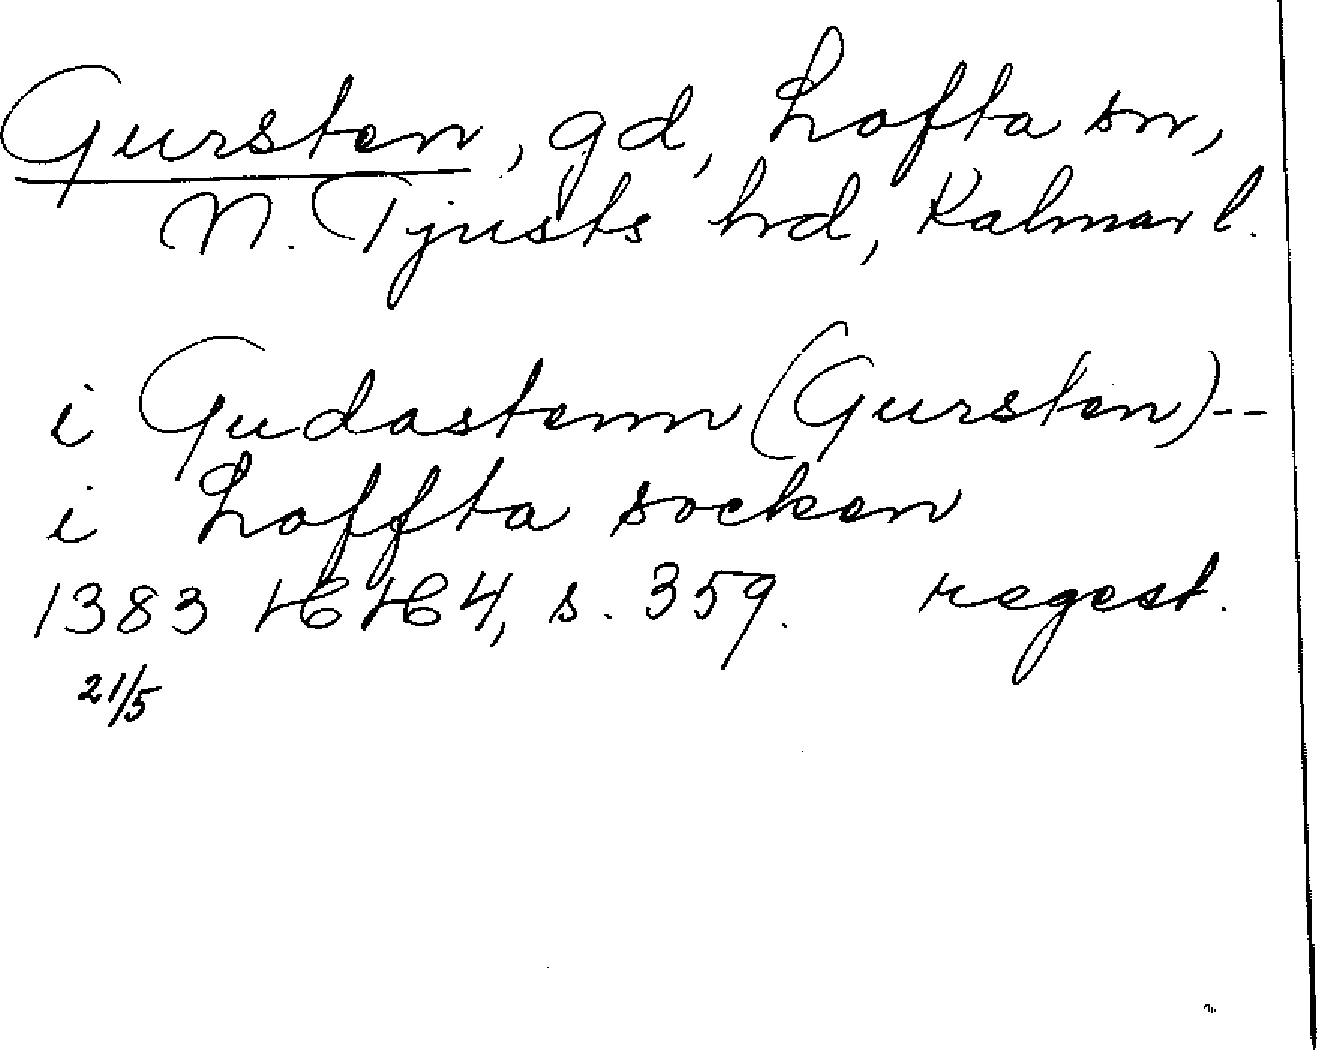 Gursten, gd, Lofta sn,
N. Tjusts hd, Kalmar l.
i Gudastenn (Gursten)--
i Loffta socken
1383 HH 4, s. 359. regest.
21/5